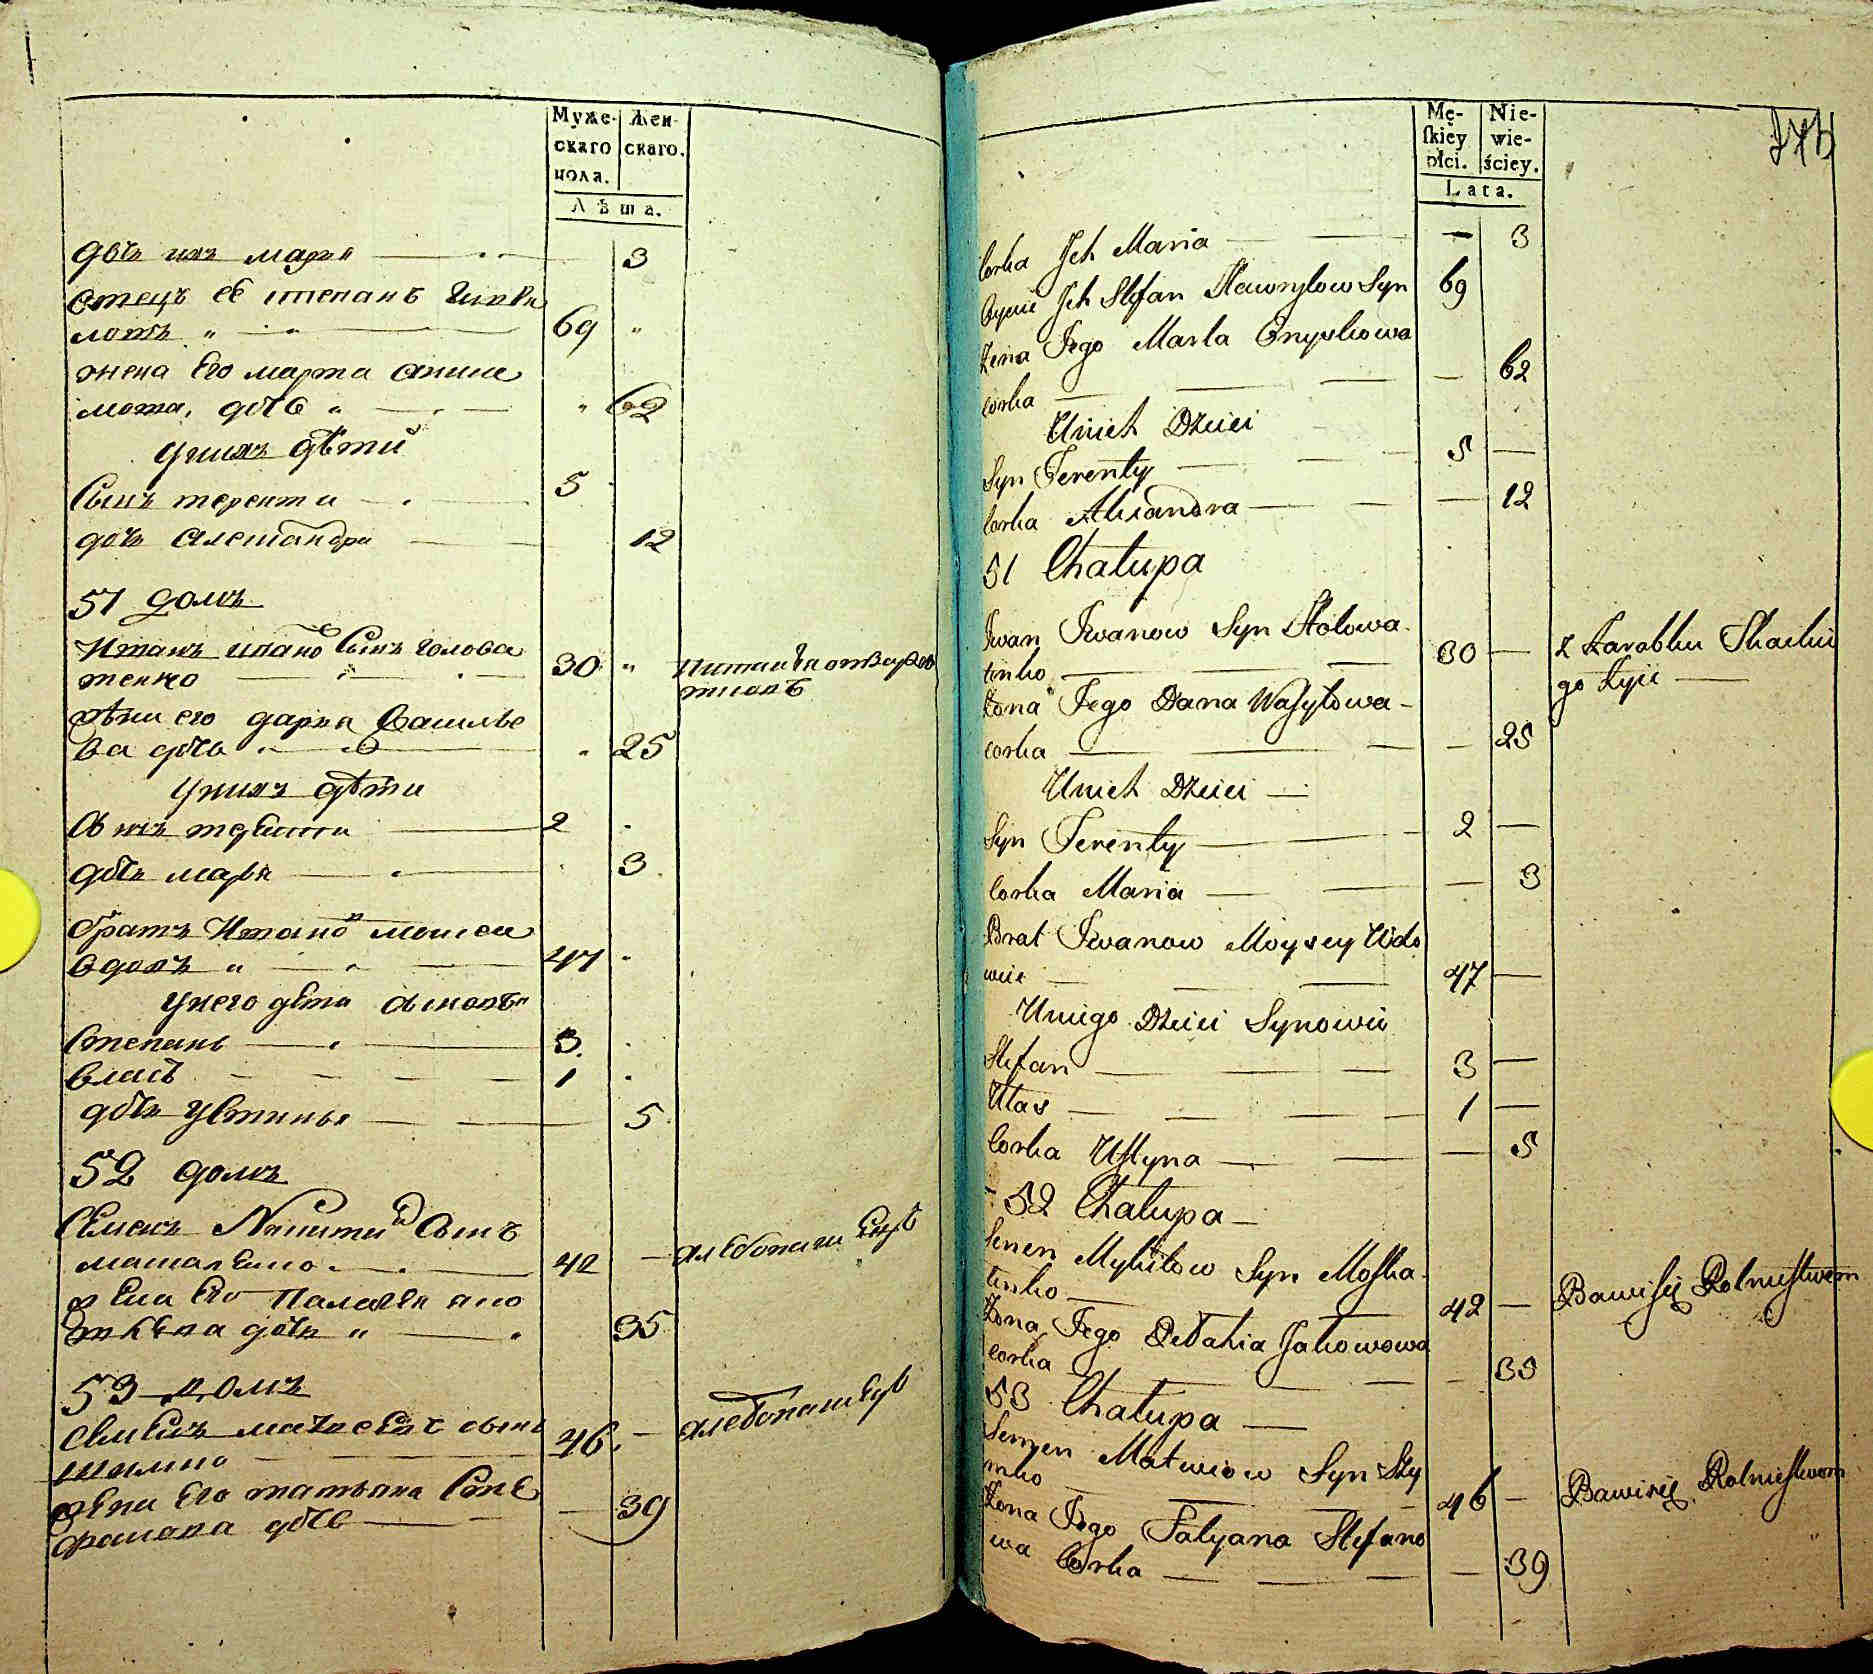 Муже-
скаго
пола.
Жен-
скаго.
Лѣта.
дочь ихъ марья 3
отецъ ее степанъ
69 "
жена Его марта
дочь " 62
у нихъ дѣти
Сынъ терентій 5
дочь александра 12
51 домъ
Иванъ ивановъ Сынъ голова
тенко 30 "
жена его дарья Василье
ва дочь 25
у нихъ дѣти
Сынъ терентій 2
дочь марья 3
братъ Ивановъ моисей
вдовъ " 47
у него дѣти сыновья
Степанъ 3
власъ 1
дочь устинья 5
52 домъ
Семенъ Никитинъ Сынъ
42 — хлебопашецъ
жена Его Палагея яко
влева дочь " 35
53 домъ
семенъ матвеевъ сынъ
шимко 46 — хлебопашецъ
жена Его татьяна Сте
фанова дочь — 39
Mę-
skiey
płci.
Nie-
wie-
ściey.
Lata.
Corka Jch Maria — 3
Oyciec Jch Stefan Hawryłow Syn 69
Żena Jego Marta Onyskowa
Corka — 62
Unich Dzieci
Syn Terenty 5 —
Corka Alexandra — 12
51 Chałupa
Jwan Jwanow Syn Hołowa
tenko 30 — z Zarobku Skaciu
go żyie
Żona Jego Daria Wasylowa
corka — 25
Unich Dzieci
Syn Terenty 2 —
Corka Maria — 3
Brat Jwanow Moysey Wdo
wiec 47 —
Uniego Dzieci Synowie
Stefan 3 —
Ułas 1 —
Corka Ustyna — 5
52 Chałupa
Semen Mykitow Syn Moska
tenko 42 — Bawi się Rolnictwem
Żona Jego Pełahia Jakowowa
corka — 35
53 Chałupa
Semen Matwiow Syn Szy
mko 46 — Bawi się Rolnictwem
Żona Jego Tatyana Stefano
wa Corka — 39